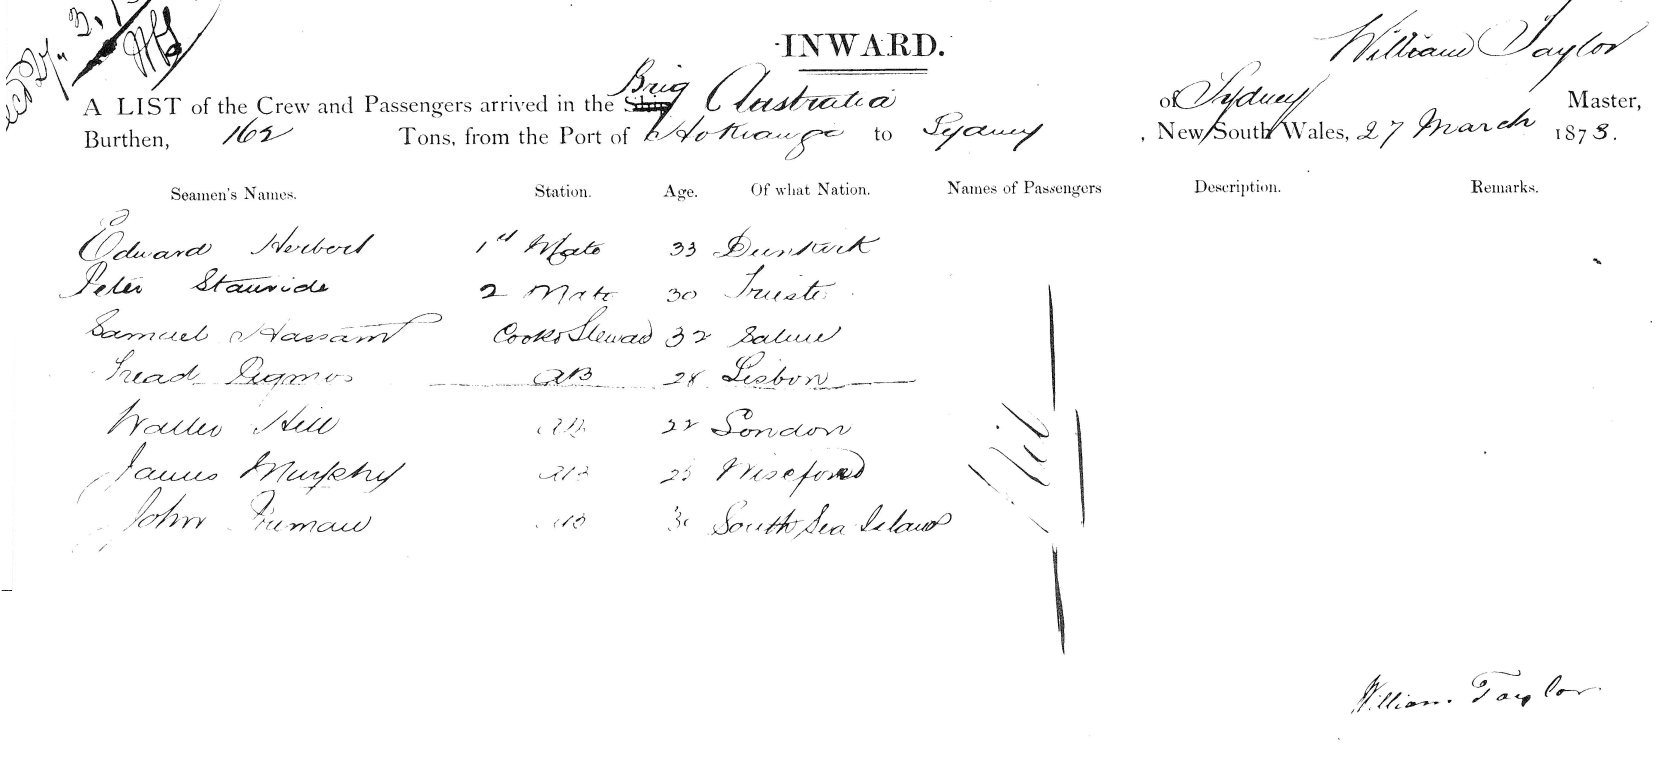 INWARD.
William Taylor
Brig
A LIST of the Crew and Passengers arrived in the Ship Australia of Sydney Master,
Burthen, 162 Tons, from the Port of Hokianga to Sydney , New South Wales, 27 March 1873.
Seamen's Names. Station. Age. Of what Nation. Names of Passengers Description. Remarks.
Edward Herbert 1st Mate 33 Dunkirk
Peter Stauride 2 Mate 30 Trieste
Samuel Hassam Cook & Steward 32
AB 28 Lisbon
Walter Hill AB 22 London
James Murphy AB 25
John AB South Sea Island
Nil
William Taylor